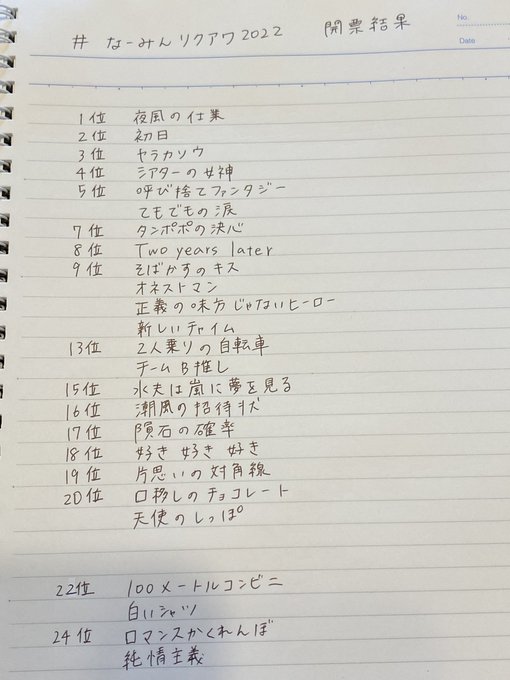 No.
Date
# なーみんリクアワ2022 開票結果
1位 夜風の仕業
2位 初日
3位 ヤラカソウ
4位 シアターの女神
5位 呼び捨てファンタジー
てもでもの涙
7位 タンポポの決心
8位 Two years later
9位 そばかすのキス
オネストマン
正義の味方じゃないヒーロー
新しいチャイム
13位 2人乗りの自転車
チームB推し
15位 水夫は嵐に夢を見る
16位 潮風の招待状
17位 隕石の確率
18位 好き 好き 好き
19位 片思いの対角線
20位 口移しのチョコレート
天使のしっぽ
22位 100メートルコンビニ
白いシャツ
24位 ロマンスかくれんぼ
純情主義